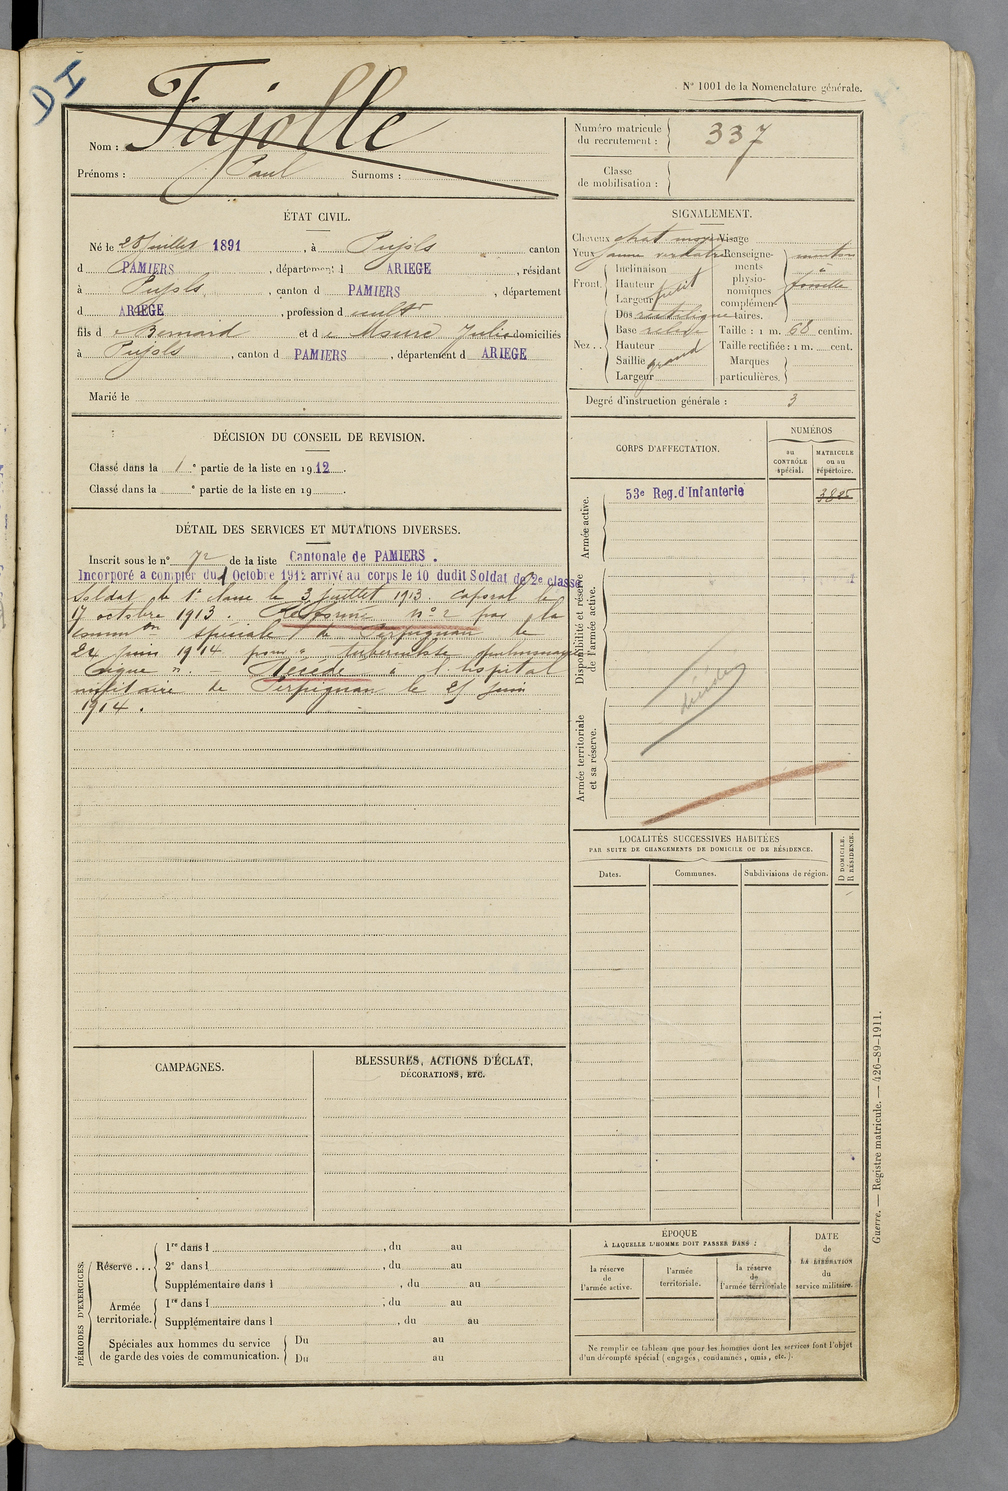 DI
N° 1001 de la Nomenclature générale.
Nom : Fajolle
Prénoms : Paul Surnoms :
Numéro matricule du recrutement : 337
Classe de mobilisation :
ÉTAT CIVIL.
Né le 28 juillet 1891, à Pujols canton
d PAMIERS, département d ARIEGE, résidant
à Pujols, canton d PAMIERS, département
d ARIEGE, profession d cultr
fils d e Bernard et d e Julie domiciliés
à Pujols, canton d PAMIERS, département d ARIEGE
Marié le
SIGNALEMENT.
Cheveux chat moyen Visage
Yeux jaune verdatre
Front. Inclinaison
Hauteur
Largeur petit
Nez .. Dos rectiligne
Base relevée
Hauteur
Saillie grand
Largeur
Renseignements physionomiques complémentaires. menton
à
fossette
Taille : 1 m. 68 centim.
Taille rectifiée : 1 m. cent.
Marques particulières.
Degré d'instruction générale : 3
DÉCISION DU CONSEIL DE REVISION.
Classé dans la 1e partie de la liste en 1912.
Classé dans la e partie de la liste en 19 .
DÉTAIL DES SERVICES ET MUTATIONS DIVERSES.
Inscrit sous le n° 72 de la liste Cantonale de PAMIERS.
Incorporé a compter du 1 Octobre 1912 arrivé au corps le 10 dudit Soldat de 2e classe
Soldat de 1e classe le 3 juillet 1913. Caporal le
17 octobre 1913. Réformé n° 2 par la
common spéciale de Perpignan le
24 juin 1914 pour " tuberculose pulmonaire
aigue ". Décédé à l'hôpital
militaire de Perpignan le 25 juin
1914.
CORPS D'AFFECTATION.
NUMÉROS
au CONTRÔLE spécial.
MATRICULE ou au répertoire.
Armée active.
53e Reg. d'Infanterie
Disponibilité et réserve de l'armée active.
décédé
Armée territoriale et sa réserve.
LOCALITÉS SUCCESSIVES HABITÉES
PAR SUITE DE CHANGEMENTS DE DOMICILE OU DE RÉSIDENCE.
D DOMICILE. R RÉSIDENCE.
Dates. Communes. Subdivisions de région.
CAMPAGNES.
BLESSURES, ACTIONS D'ÉCLAT,
DÉCORATIONS, ETC.
PÉRIODES D'EXERCICES.
Réserve ... 1re dans l , du au
2e dans l , du au
Supplémentaire dans l , du au
Armée territoriale. 1re dans l , du au
Supplémentaire dans l , du au
Spéciales aux hommes du service de garde des voies de communication. Du au
Du au
ÉPOQUE
À LAQUELLE L'HOMME DOIT PASSER DANS :
la réserve de l'armée active.
l'armée territoriale.
la réserve de l'armée territoriale
DATE de LA LIBÉRATION du service militaire.
Ne remplir ce tableau que pour les hommes dont les services font l'objet
d'un décompte spécial (engagés, condamnés, omis, etc.).
Guerre. — Registre matricule. — 426-89-1911.